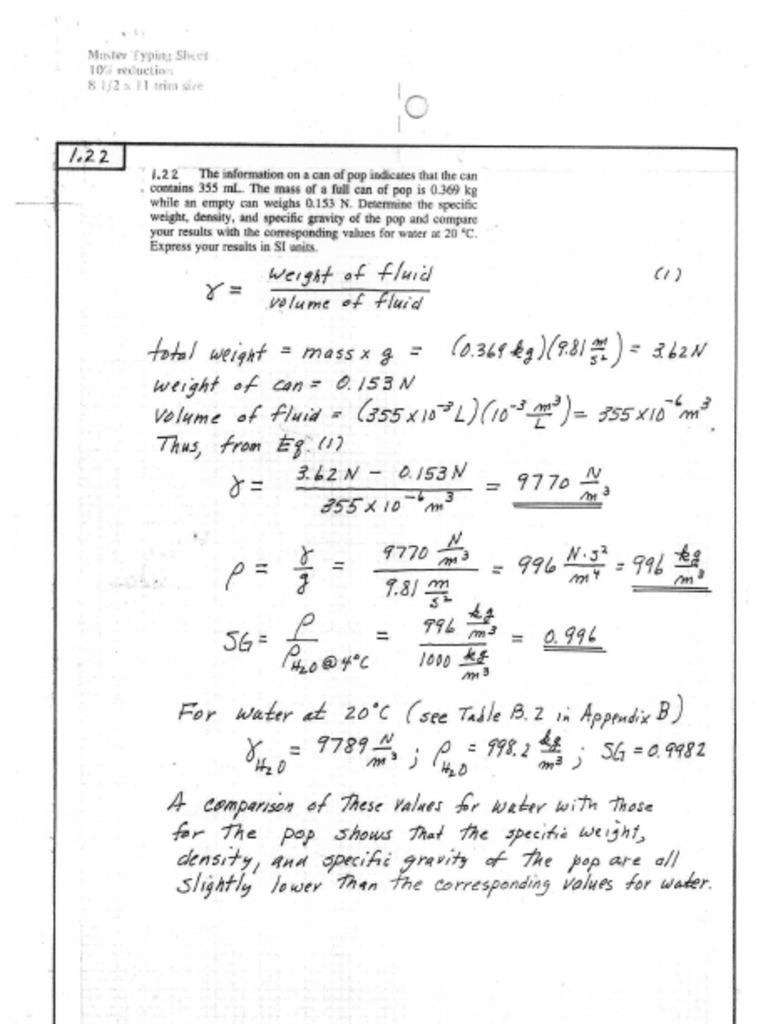 Master Typing Sheet
10% reduction
8 1/2 x 11 trim size
1.22
1.22 The information on a can of pop indicates that the can
contains 355 mL. The mass of a full can of pop is 0.369 kg
while an empty can weighs 0.153 N. Determine the specific
weight, density, and specific gravity of the pop and compare
your results with the corresponding values for water at 20 °C.
Express your results in SI units.
γ = weight of fluid / volume of fluid (1)
total weight = mass x g = (0.369 kg)(9.81 m/s²) = 3.62 N
weight of can = 0.153 N
volume of fluid = (355 x 10⁻³ L)(10⁻³ m³/L) = 355 x 10⁻⁶ m³.
Thus, from Eq. (1)
γ = 3.62 N - 0.153 N / 355 x 10⁻⁶ m³ = 9770 N/m³
ρ = γ/g = 9770 N/m³ / 9.81 m/s² = 996 N·s²/m⁴ = 996 kg/m³
SG = ρ / ρ H₂O @ 4°C = 996 kg/m³ / 1000 kg/m³ = 0.996
For water at 20°C (see Table B.2 in Appendix B)
γ H₂O = 9789 N/m³ ; ρ H₂O = 998.2 kg/m³ ; SG = 0.9982
A comparison of these values for water with those
for the pop shows that the specific weight,
density, and specific gravity of the pop are all
slightly lower than the corresponding values for water.